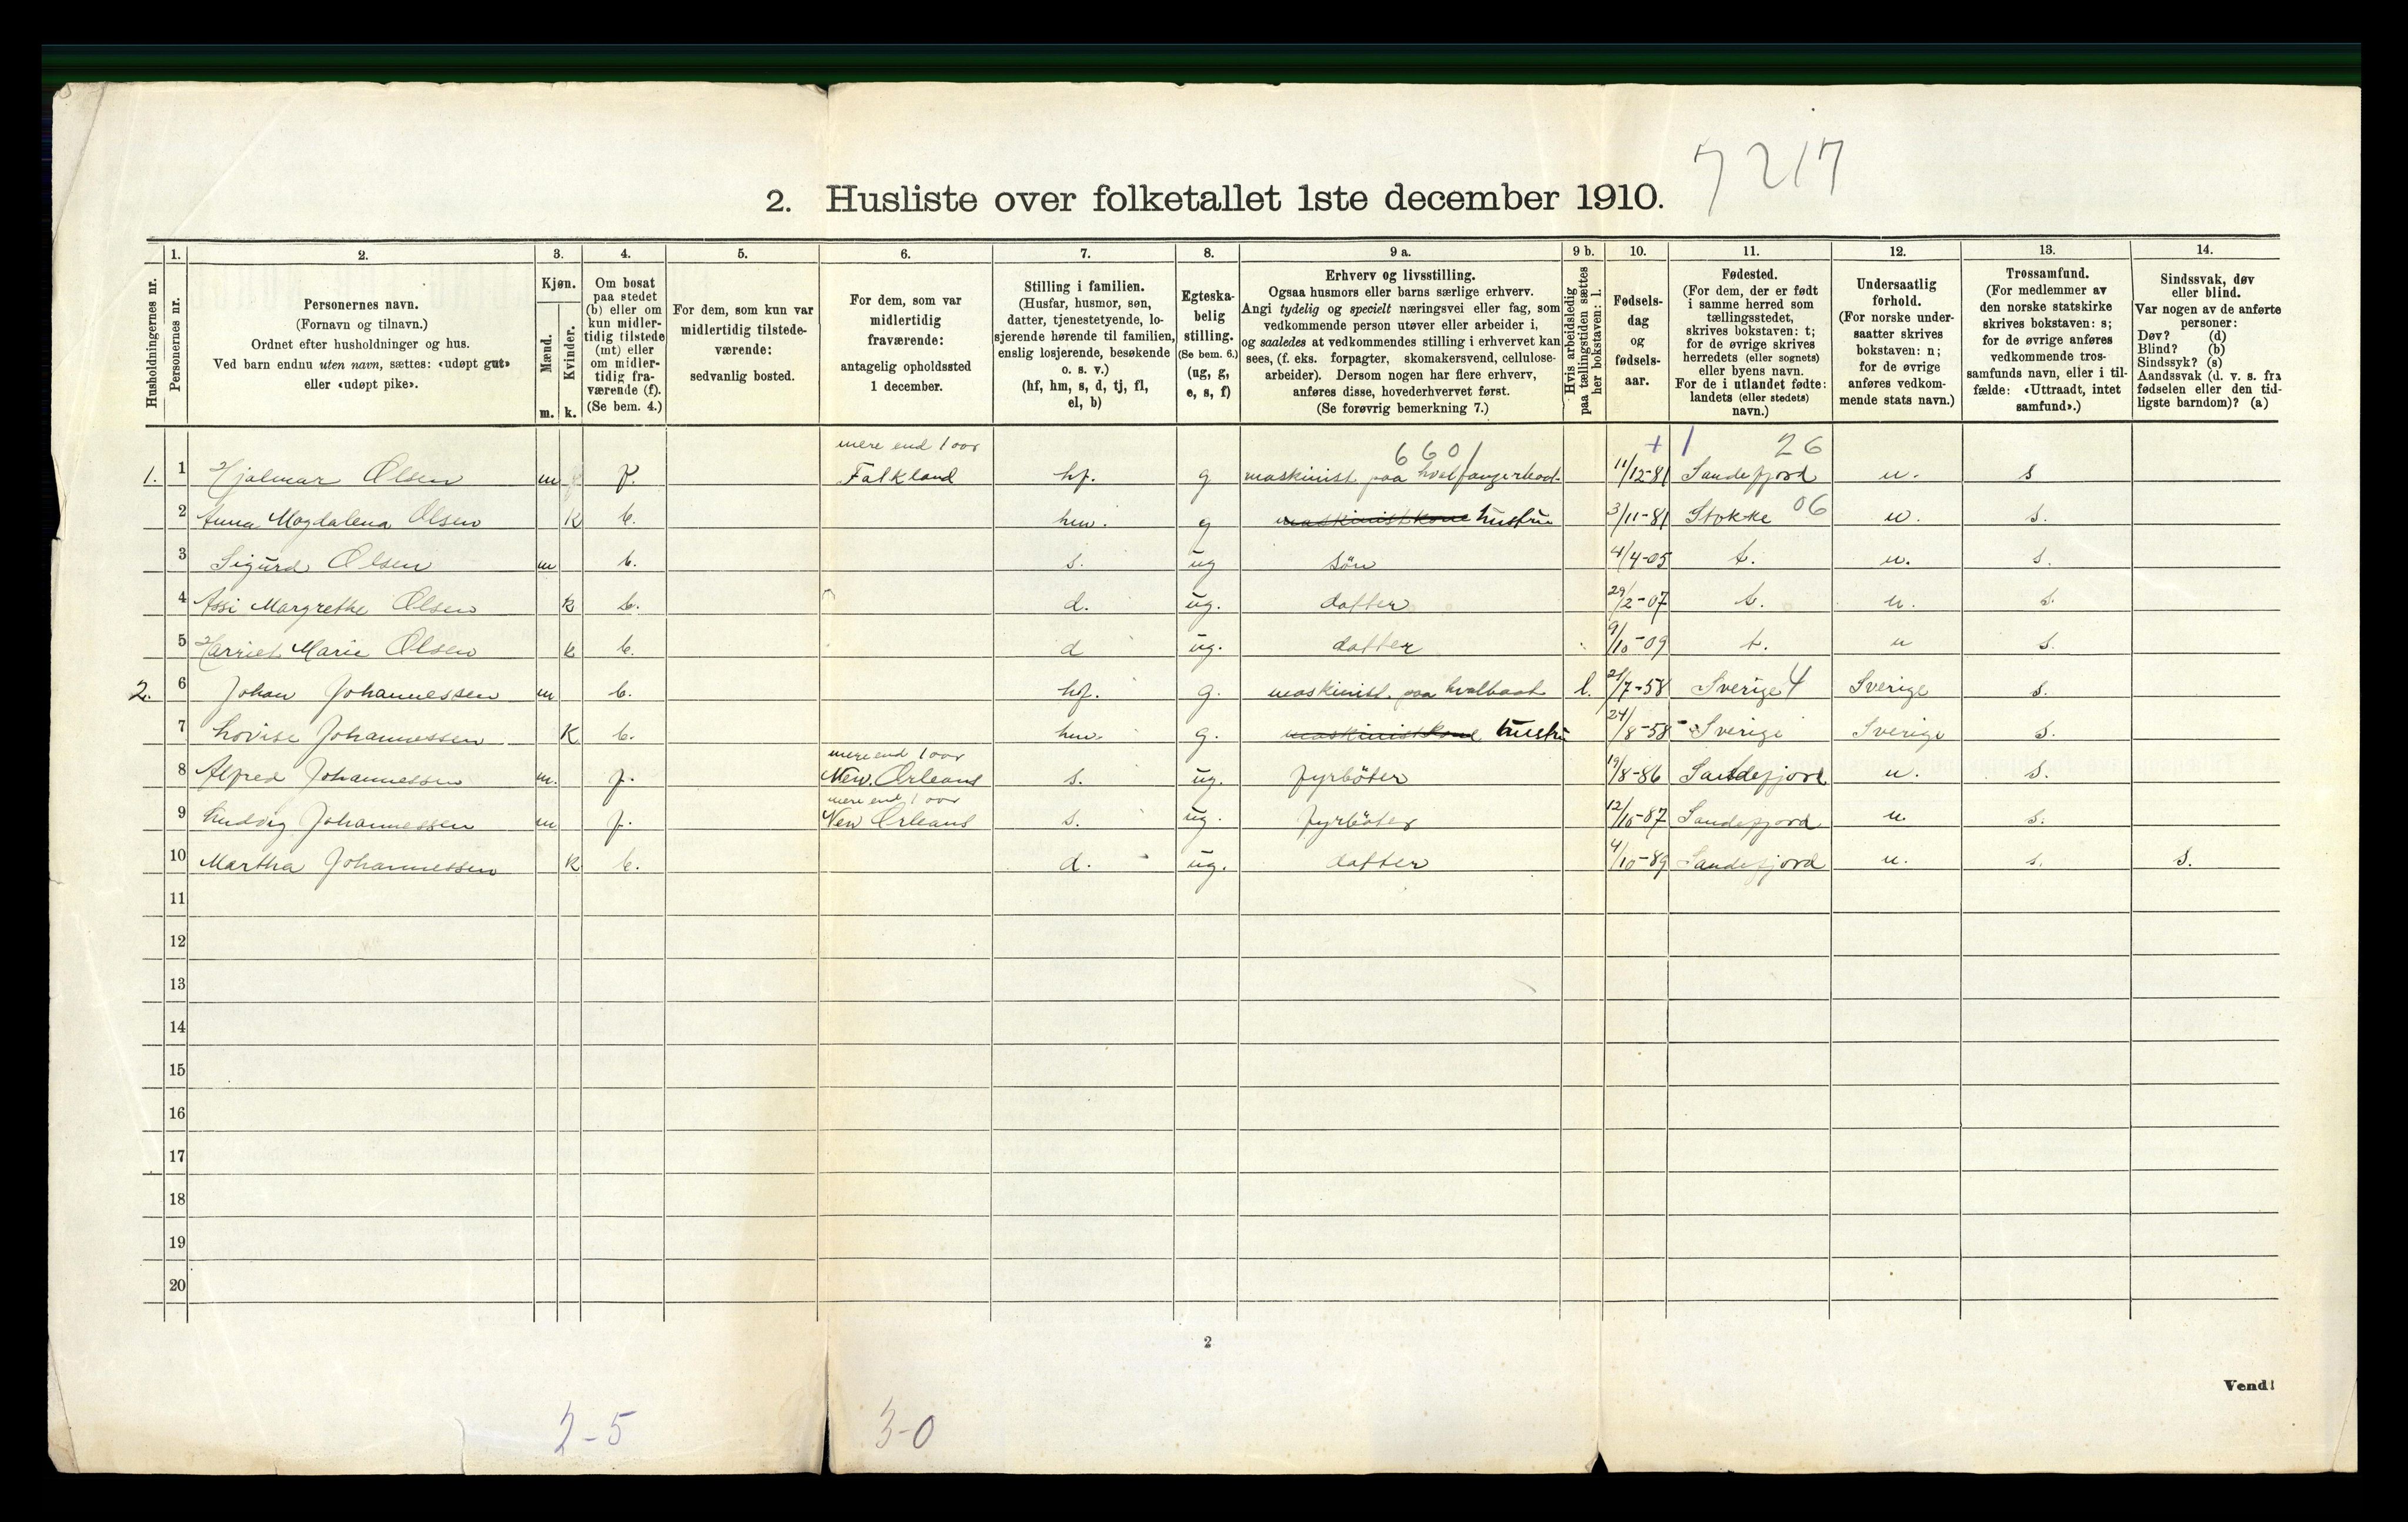 7217
2. Husliste over folketallet 1ste december 1910.
Husholdningernes nr.
1.
Personernes nr.
2.
Personernes navn.
(Fornavn og tilnavn.)
Ordnet efter husholdninger og hus.
Ved barn endnu uten navn, sættes: «udøpt gut»
eller «udøpt pike».
3.
Kjøn.
Mænd.
m.
Kvinder.
k.
4.
Om bosat
paa stedet
(b) eller om
kun midler-
tidig tilstede
(mt) eller
om midler-
tidig fra-
værende (f).
(Se bem. 4.)
5.
For dem, som kun var
midlertidig tilstede-
værende:
sedvanlig bosted.
6.
For dem, som var
midlertidig
fraværende:
antagelig opholdssted
1 december.
7.
Stilling i familien.
(Husfar, husmor, søn,
datter, tjenestetyende, lo-
sjerende hørende til familien,
enslig losjerende, besøkende
o. s. v.)
(hf, hm, s, d, tj, fl,
el, b)
8.
Egteska-
belig
stilling.
(Se bem. 6.)
(ug, g,
e, s, f)
9 a.
Erhverv og livsstilling.
Ogsaa husmors eller barns særlige erhverv.
Angi tydelig og specielt næringsvei eller fag, som
vedkommende person utøver eller arbeider i,
og saaledes at vedkommendes stilling i erhvervet kan
sees, (f. eks. forpagter, skomakersvend, cellulose-
arbeider). Dersom nogen har flere erhverv,
anføres disse, hovederhvervet først.
(Se forøvrig bemerkning 7.)
9 b.
Hvis arbeidsledig
paa tællingstiden sættes
her bokstaven: l.
10.
Fødsels-
dag
og
fødsels-
aar.
11.
Fødested.
(For dem, der er født
i samme herred som
tællingsstedet,
skrives bokstaven: t;
for de øvrige skrives
herredets (eller sognets)
eller byens navn.
For de i utlandet fødte:
landets (eller stedets)
navn.)
12.
Undersaatlig
forhold.
(For norske under-
saatter skrives
bokstaven: n;
for de øvrige
anføres vedkom-
mende stats navn.)
13.
Trossamfund.
(For medlemmer av
den norske statskirke
skrives bokstaven: s;
for de øvrige anføres
vedkommende tros-
samfunds navn, eller i til-
fælde: «Uttraadt, intet
samfund».)
14.
Sindssvak, døv
eller blind.
Var nogen av de anførte
personer:
Døv? (d)
Blind? (b)
Sindssyk? (s)
Aandssvak (d. v. s. fra
fødselen eller den tid-
ligste barndom)? (a)
mere end 1 aar 6601 + 1 26
1. 1 Hjalmar Olsen m f. Falkland hf. g maskinist paa hvalfangerbaat 11/12-81 Sandefjord n. s
2 Anna Magdalena Olsen k b. hm. g maskinistkone hustru 3/11-81 Stokke 06 n. s.
3 Sigurd Olsen m b. s. ug sön 4/4-05 t. n. s.
4 Assi Margrethe Olsen k b. d. ug. datter 29/2-07 t. n. s.
5 Harriet Marie Olsen k b. d ug. datter 9/10-09 t. n s.
2. 6 Johan Johannessen m b. hf. g. maskinist paa hvalbaat l. 21/7-58 Sverige 4 Sverige s.
7 Lovise Johannessen k b. hm. g. maskinistkone hustru 24/8-58 Sverige Sverige s.
mere end 1 aar
8 Alfred Johannessen m. f. New. Orleans s. ug. fyrböter 19/8-86 Sandefjord n. s.
mere end 1 aar
9 Ludvig Johannessen m f. New Orleans s. ug. fyrböter 12/10-87 Sandefjord n. s.
10 Martha Johannessen k b. d. ug. datter 4/10-89 Sandefjord n. s. s.
11
12
13
14
15
16
17
18
19
20
2
Vend!
2-5 3-0